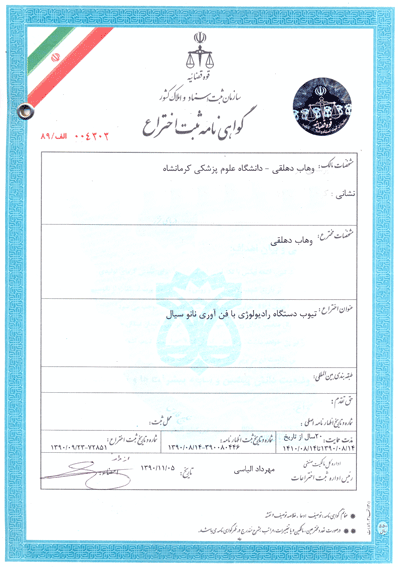 قوه قضائیه
سازمان ثبت اسناد و املاک کشور
گواهی نامه ثبت اختراع
۰۰۴۲۰۲ الف/۸۹
مشخصات مالک: وهاب دهلقی - دانشگاه علوم پزشکی کرمانشاه
نشانی :
مشخصات مخترع: وهاب دهلقی
عنوان اختراع: تیوب دستگاه رادیولوژی با فن آوری نانو سیال
طبقه بندی بین المللی:
حق تقدم:
شماره و تاریخ اظهارنامه اصلی:
مدت حمایت: ۲۰سال از تاریخ
۱۳۹۰/۰۸/۱۴تا ۱۴۱۰/۰۸/۱۴
محل ثبت:
شماره و تاریخ ثبت اظهارنامه:
۱۳۹۰/۰۸/۱۴-۳۹۰۰۸۰۴۴۶
شماره و تاریخ ثبت اختراع:
۱۳۹۰/۰۹/۲۳-۷۲۸۵۱
اداره کل مالکیت صنعتی
رئیس اداره ثبت اختراعات
مهرداد الیاسی
تاریخ: ۱۳۹۰/۱۱/۰۵